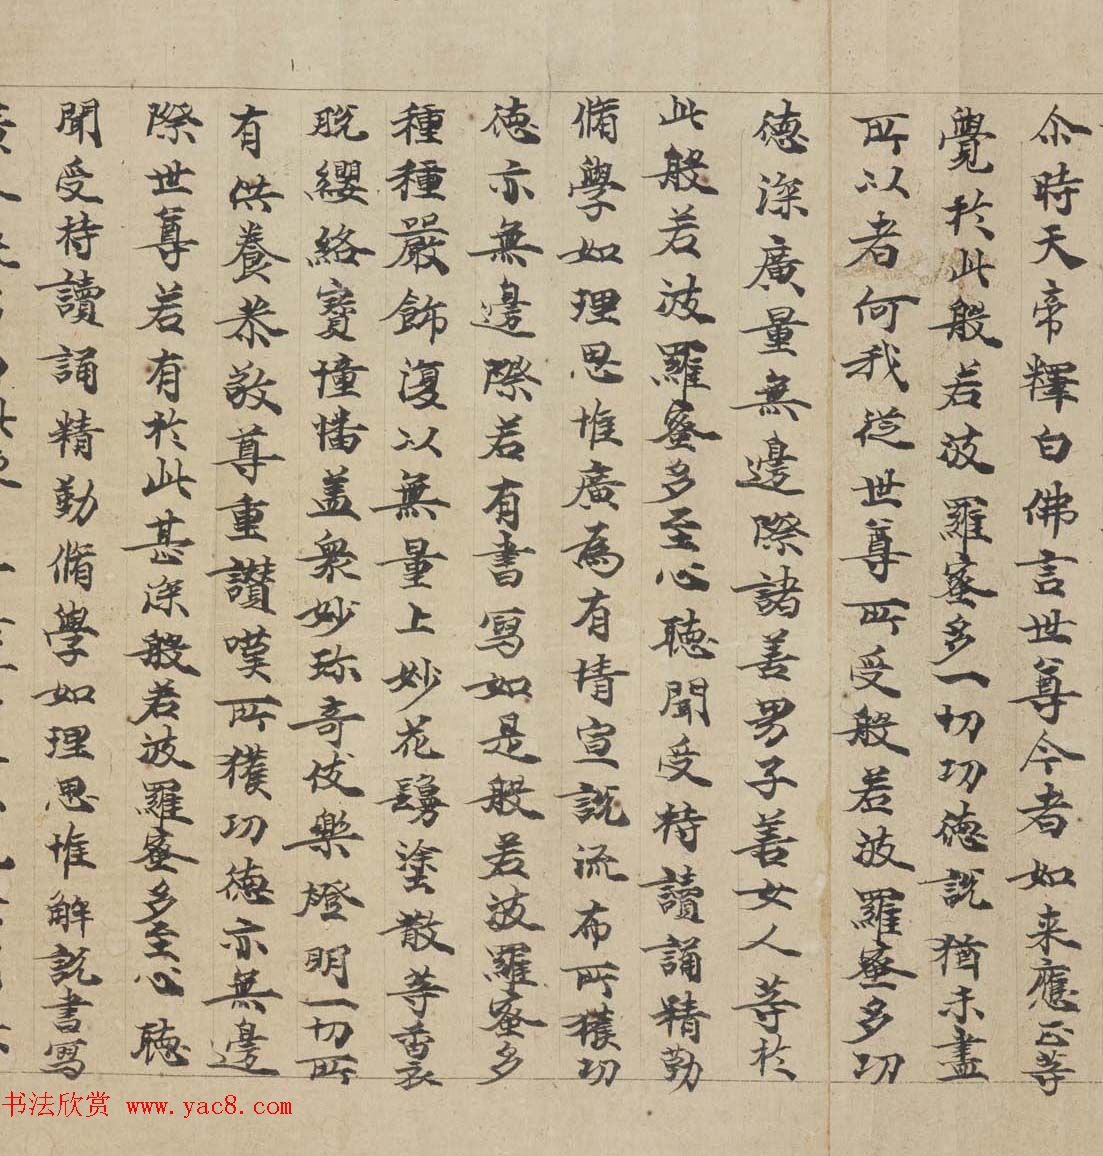 尒時天帝釋白佛言世尊今者如来應正等
覺於此般若波羅蜜多一切功德說猶未盡
所以者何我從世尊所受般若波羅蜜多功
德深廣量無邊際諸善男子善女人等於
此般若波羅蜜多至心聽聞受持讀誦精勤
脩學如理思惟廣為有情宣說流布所獲功
德亦無邊際若有書寫如是般若波羅蜜多
種種嚴飾復以無量上妙花鬘塗散等香衣
脫纓絡寶憧幡盖衆妙珎奇伎樂橙明一切所
有供養恭敬尊重讃嘆所獲功德亦無邊
際世尊若有於此甚深般若波羅蜜多至心聽
聞受持讀誦精勤脩學如理思惟解說書寫
书法欣赏 www.yac8.com